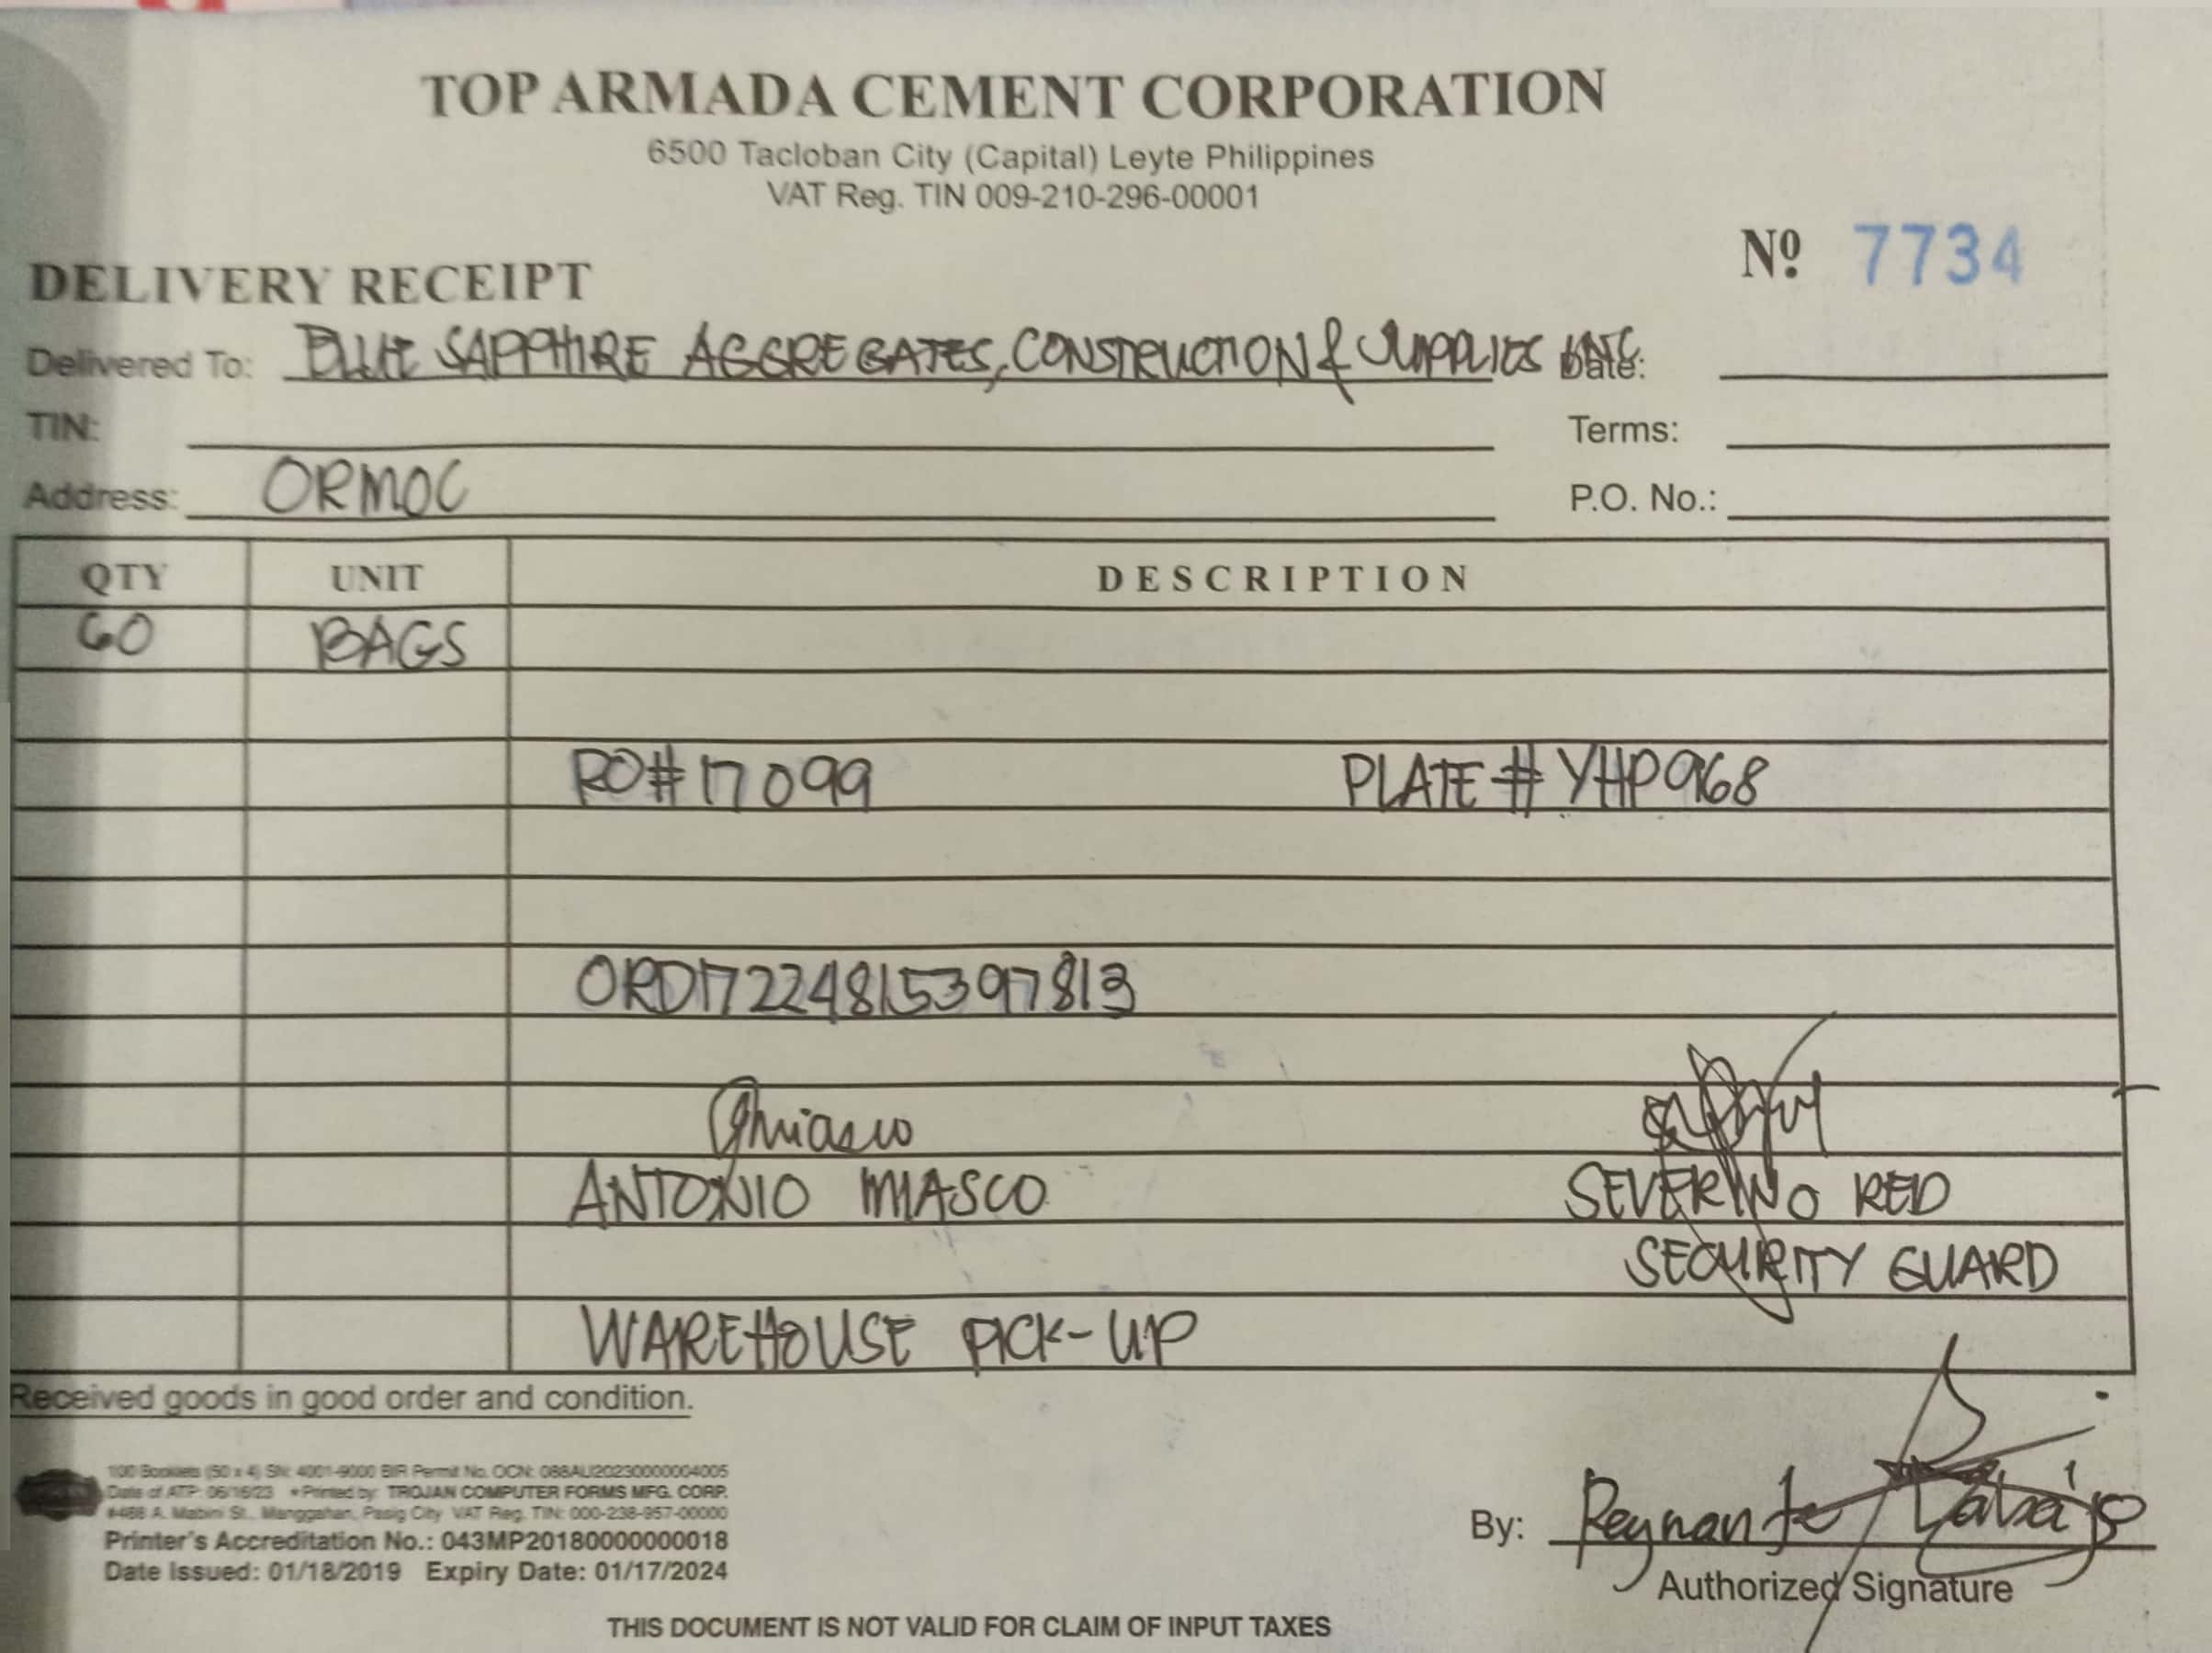 TOP ARMADA CEMENT CORPORATION
6500 Tacloban City (Capital) Leyte Philippines
VAT Reg. TIN 009-210-296-00001
Nº 7734
DELIVERY RECEIPT
Delivered To: BLUE SAPPHIRE AGGREGATES, CONSTRUCTION & SUPPLIES INC. Date:
TIN: Terms:
Address: ORMOC P.O. No.:
QTY UNIT DESCRIPTION
60 BAGS
RO# 17099 PLATE # YHP968
ORD17224815397813
ANTONIO MIASCO SEVERINO RED
SECURITY GUARD
WAREHOUSE PICK-UP
Received goods in good order and condition.
100 Booklets (50 x 4) SN: 4001-9000 BIR Permit No. OCN: 088AU20230000004005
Date of ATP: 06/16/23 • Printed by: TROJAN COMPUTER FORMS MFG. CORP.
#488 A. Mabini St., Manggahan, Pasig City VAT Reg. TIN: 000-238-957-00000
Printer's Accreditation No.: 043MP20180000000018
Date Issued: 01/18/2019 Expiry Date: 01/17/2024
By: Reynante
Authorized Signature
THIS DOCUMENT IS NOT VALID FOR CLAIM OF INPUT TAXES